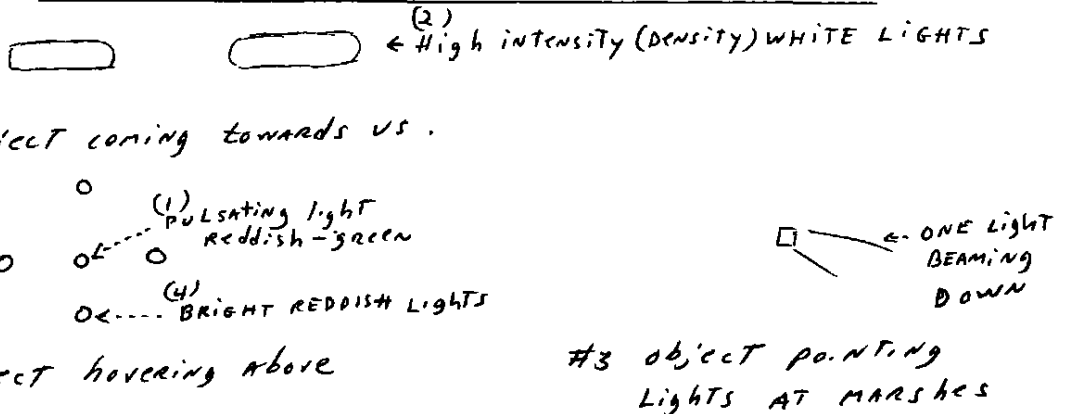 (2)
← High intensity (Density) WHITE LIGHTS
coming towards us.
(1)
PULSATING light
Reddish-green
(4)
BRIGHT REDDISH LIGHTS
← ONE LIGHT
BEAMING
DOWN
hovering Above
#3 object pointing
Lights AT MARSHES